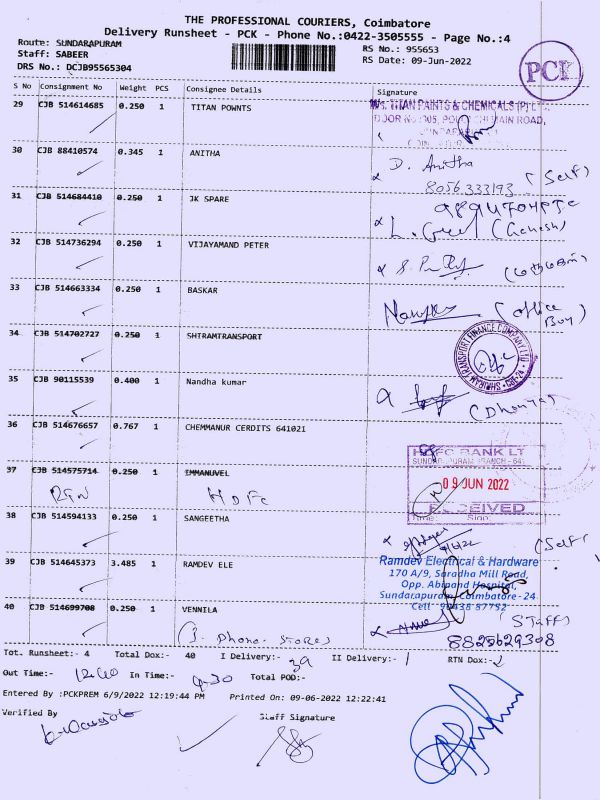 THE PROFESSIONAL COURIERS, Coimbatore
Delivery Runsheet - PCK - Phone No.:0422-3505555 - Page No.:4
Route: SUNDARAPURAM
Staff: SABEER
DRS No.: DCJB95565304
RS No.: 955653
RS Date: 09-Jun-2022
PCK
S No Consignment No Weight PCS Consignee Details Signature
29 CJB 514614685 0.250 1 TITAN POWNTS
TITAN PAINTS & CHEMICALS (P)
30 CJB 88410574 0.345 1 ANITHA
D. Anitha
8056333193 (Self)
31 CJB 514684410 0.250 1 JK SPARE
(Ganesh)
32 CJB 514736294 0.250 1 VIJAYAMAND PETER
33 CJB 514663334 0.250 1 BASKAR
(office Boy)
34 CJB 514702727 0.250 1 SHIRAMTRANSPORT
SHRIRAM TRANSPORT FINANCE COMPANY LTD
CBT-24
35 CJB 90115539 0.400 1 Nandha kumar
36 CJB 514676657 0.767 1 CHEMMANUR CERDITS 641021
HDFC BANK LT
09 JUN 2022
RECEIVED
37 CJB 514575714 0.250 1 IMMANUVEL
HDFC
38 CJB 514594133 0.250 1 SANGEETHA
(Self)
39 CJB 514645373 3.485 1 RAMDEV ELE
Ramdev Electrical & Hardware
170 A/9, Saradha Mill Road,
Opp. Abinand Hospital,
Sundarapuram, Coimbatore - 24
Cell 90438 87752
40 CJB 514699708 0.250 1 VENNILA
(Staff)
8825629308
Tot. Runsheet:- 4 Total Dox:- 40 I Delivery:- 39 II Delivery:- 1 RTN Dox:- 2
Out Time:- 12.40 In Time:- 4-30 Total POD:-
Entered By :PCKPREM 6/9/2022 12:19:44 PM Printed On: 09-06-2022 12:22:41
Verified By
Staff Signature